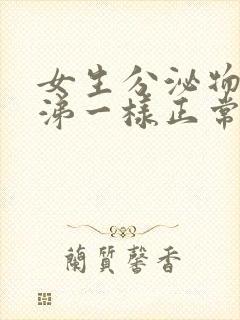 女生分泌物
涕一樣正常
蘭質馨香